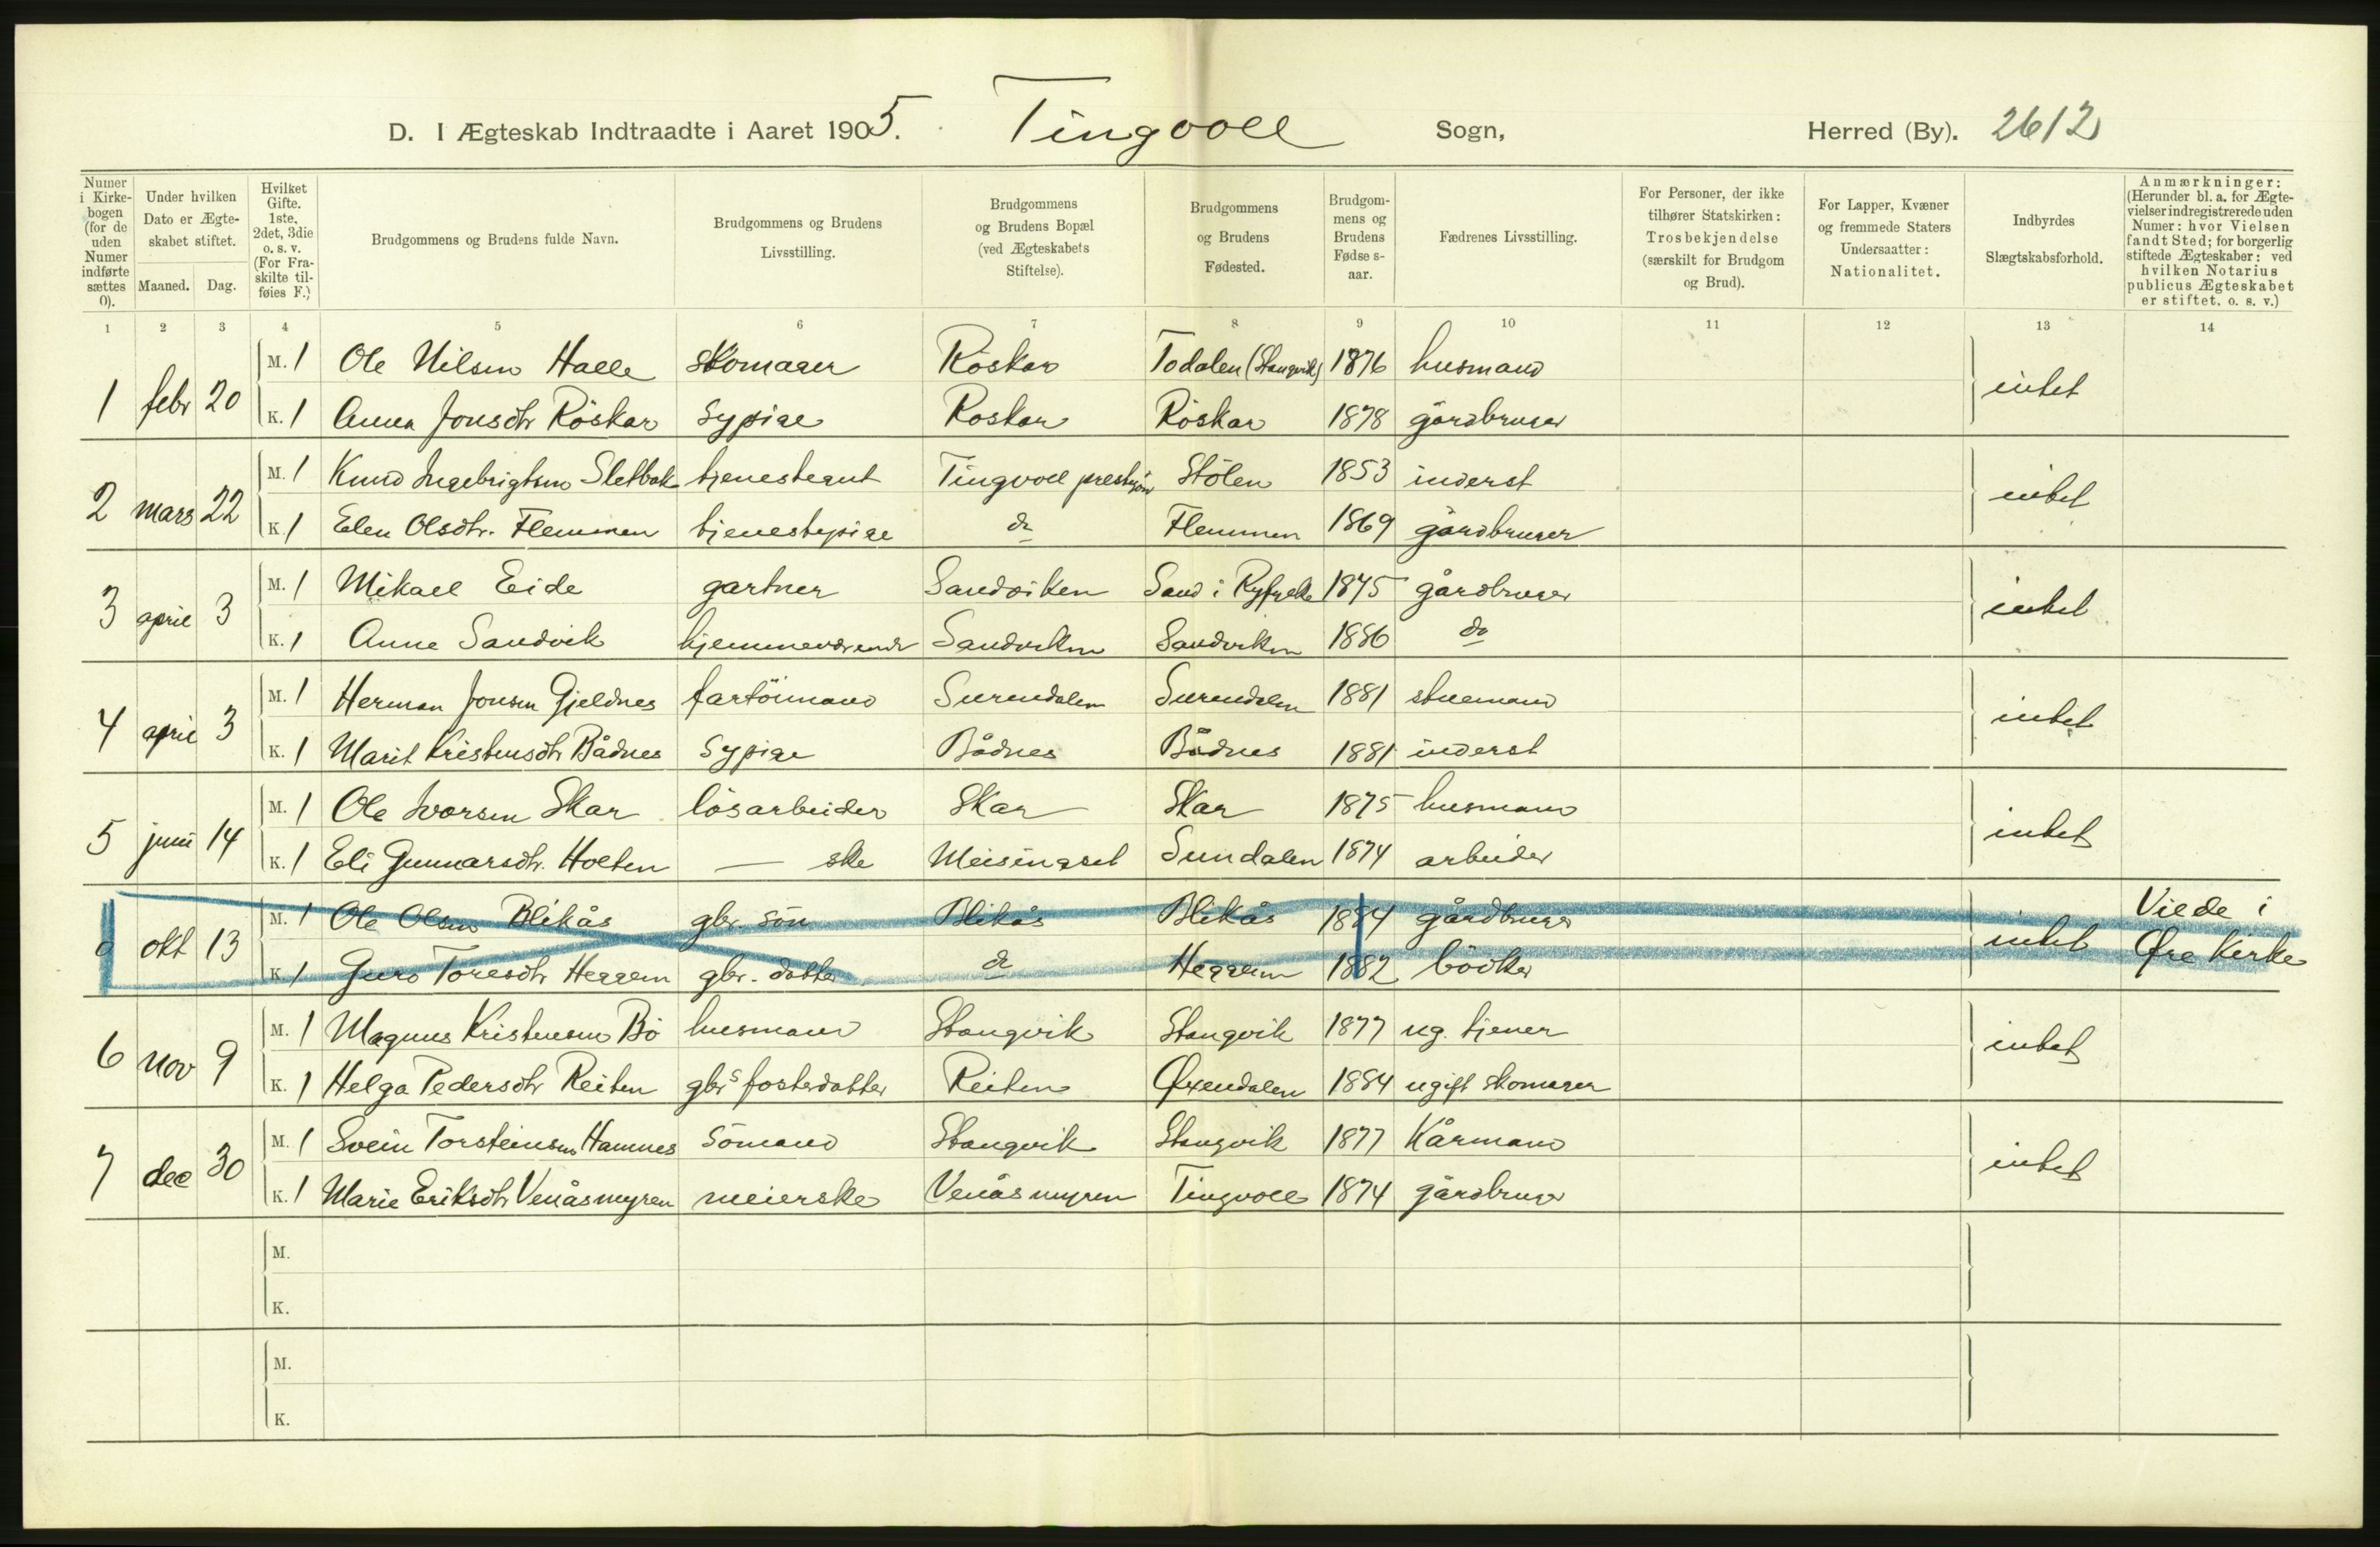 D. I Ægteskab Indtraadte i Aaret 1905. Tingvoll Sogn, Herred (By). 2612
Numer i Kirkebogen (for de uden Numer indførte sættes 0).
Under hvilken Dato er Ægteskabet stiftet.
Maaned. Dag.
Hvilket Gifte. 1ste, 2det, 3die o. s. v. (For Fraskilte tilføies F.)
Brudgommens og Brudens fulde Navn.
Brudgommens og Brudens Livsstilling.
Brudgommens og Brudens Bopæl (ved Ægteskabets Stiftelse).
Brudgommens og Brudens Fødested.
Brudgommens og Brudens Fødses-aar.
Fædrenes Livsstilling.
For Personer, der ikke tilhører Statskirken: Trosbekjendelse (særskilt for Brudgom og Brud).
For Lapper, Kvæner og fremmede Staters Undersaatter: Nationalitet.
Indbyrdes Slægtskabsforhold.
Anmærkninger: (Herunder bl. a. for Ægtevielser indregistrerede uden Numer: hvor Vielsen fandt Sted; for borgerlig stiftede Ægteskaber: ved hvilken Notarius publicus Ægteskabet er stiftet, o. s. v.)
1 2 3 4 5 6 7 8 9 10 11 12 13 14
1 febr 20 M. 1 Ole Nilsen Halle skomager Röskar Todalen (Stangvik) 1876 husmand intet
K. 1 Anna Jonsdtr Röskar sypige Röskar Röskar 1878 gårdbruger
2 mars 22 M. 1 Knud Ingebrigtsen Sletbak tjenestegut Tingvoll prestgård Stölen 1853 inderst intet
K. 1 Elen Olsdtr. Flemmen tjenestepige do Flemmen 1869 gårdbruger
3 april 3 M. 1 Mikael Eide gartner Sandviken Sand i Ryfylke 1875 gårdbruger intet
K. 1 Anne Sandvik hjemmeværende Sandviken Sandviken 1886 do
4 april 3 M. 1 Herman Jonsen Gjeldnes fartöimand Surendalen Surendalen 1881 stuemand intet
K. 1 Marit Kristensdtr Bådnes sypige Bådnes Bådnes 1881 inderst
5 juni 14 M. 1 Ole Ivarsen Skar lösarbeider Skar Skar 1875 husmand intet
K. 1 Eli Gunnarsdtr. Holten — ske Meisingset Sundalen 1874 arbeider
0 okt 13 M. 1 Ole Olsen Blikås gbr. sön Blikås Blikås 1884 gårdbruger intet Viede i
K. 1 Guro Toresdtr Heggem gbr. datter do Heggem 1882 bödker Øre Kirke
6 nov 9 M. 1 Magnus Kristensen Bö husmand Stangvik Stangvik 1877 ug. tjener intet
K. 1 Helga Pedersdtr Reiten gbrs fosterdatter Reiten Øxendalen 1884 ugift skomager
7 dec 30 M. 1 Svein Torsteinsen Hamnes sömand Stangvik Stangvik 1877 Kårmand intet
K. 1 Marie Eriksdtr Venåsmyren meierske Venåsmyren Tingvoll 1874 gårdbruger
M.
K.
M.
K.